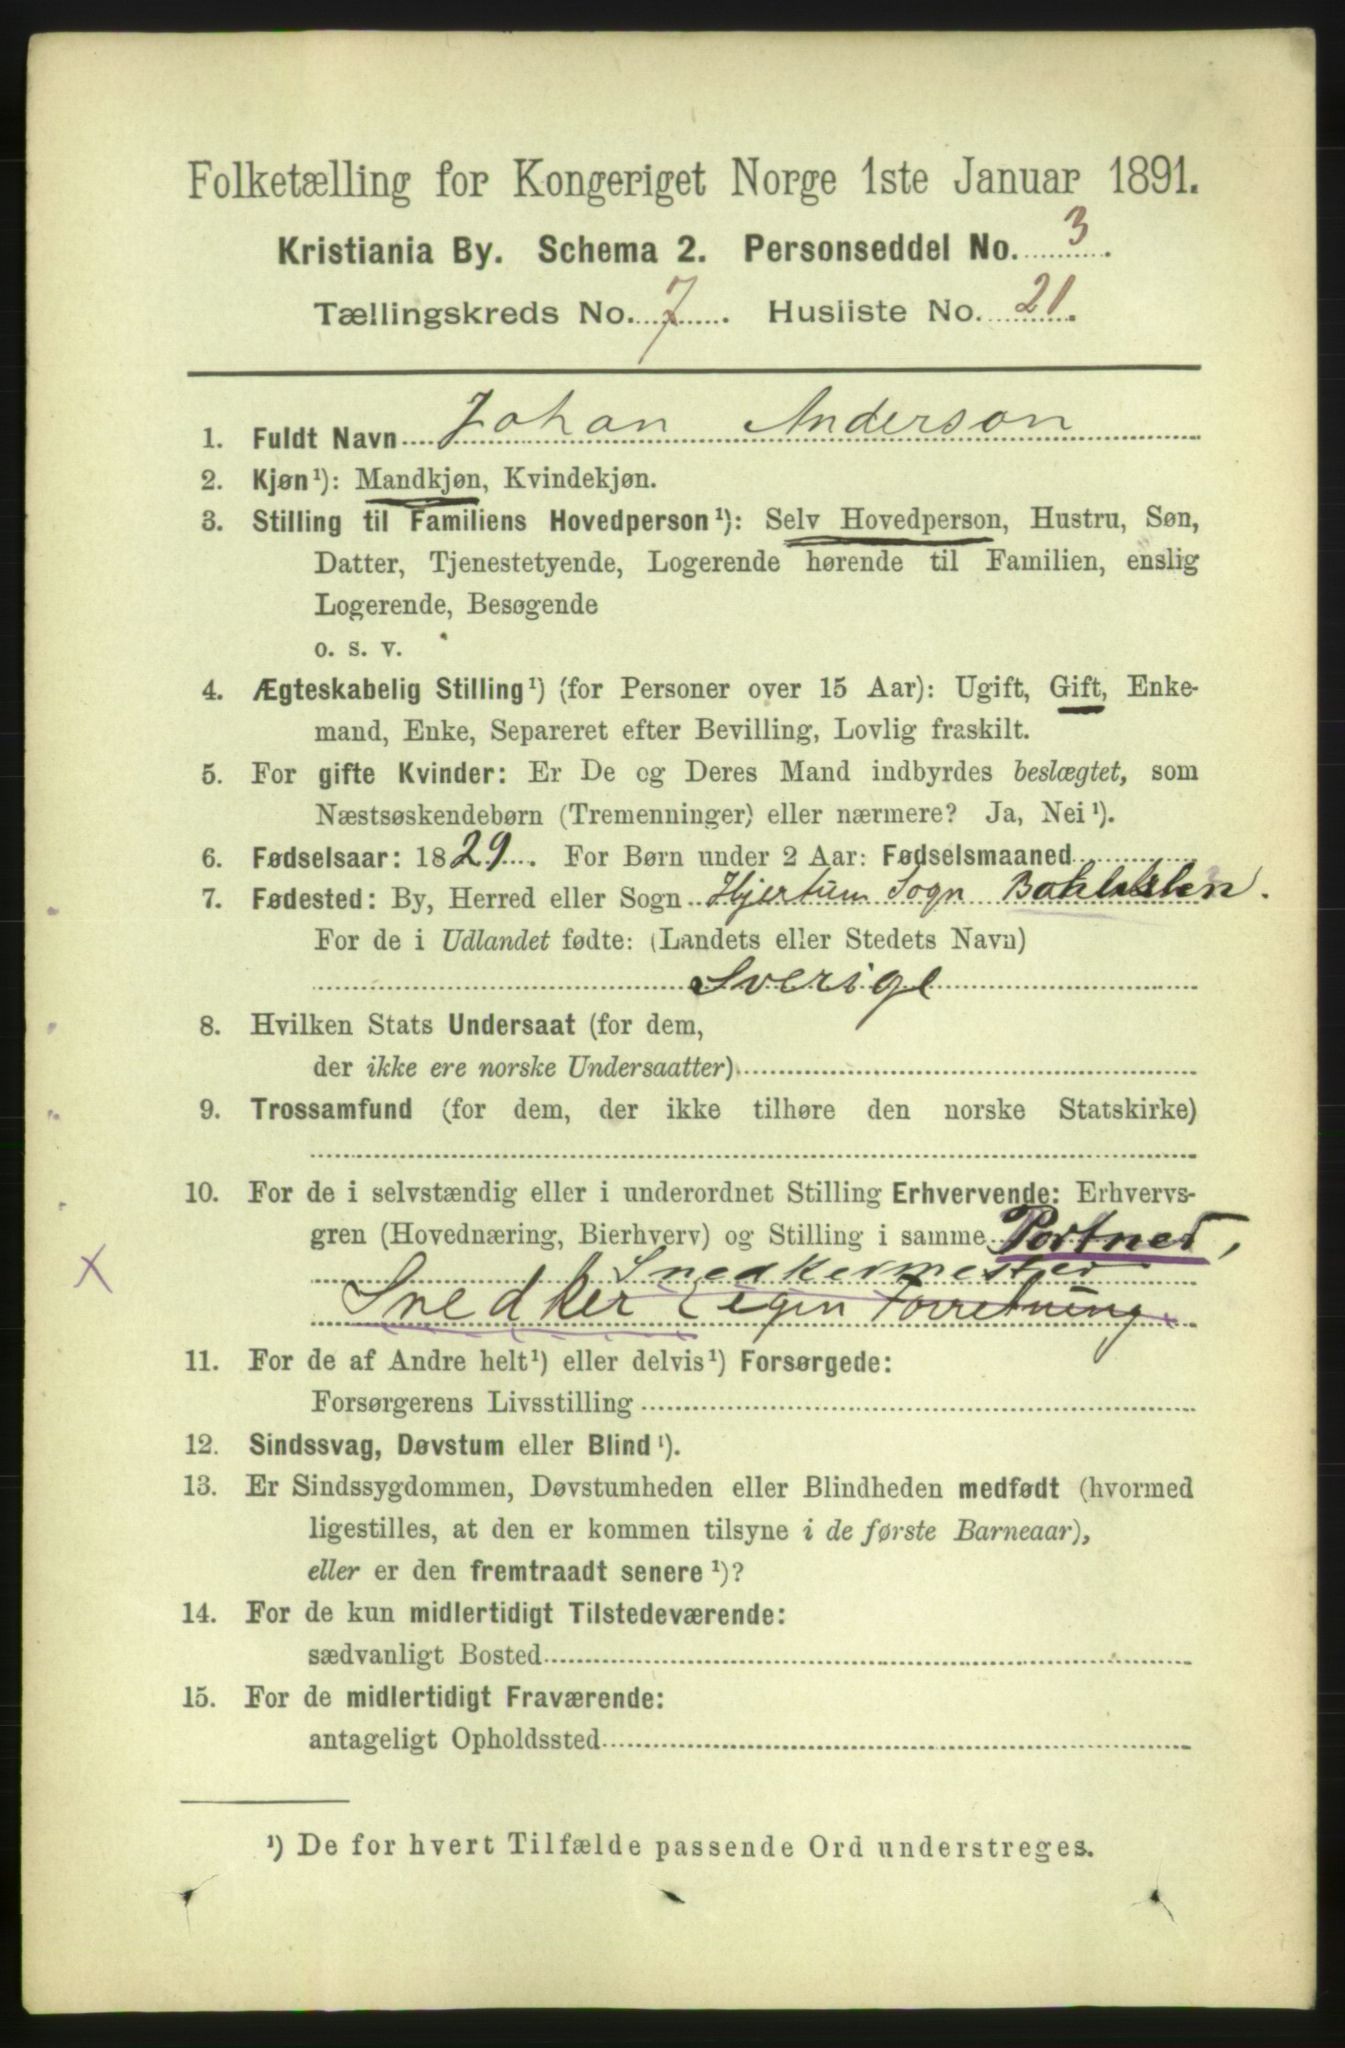 Folketælling for Kongeriget Norge 1ste Januar 1891.
Kristiania By. Schema 2. Personseddel No. 3.
Tællingskreds No. 7. Husliste No. 21.
1. Fuldt Navn Johan Anderson
2. Kjøn¹): Mandkjøn, Kvindekjøn.
3. Stilling til Familiens Hovedperson¹): Selv Hovedperson, Hustru, Søn,
Datter, Tjenestetyende, Logerende hørende til Familien, enslig
Logerende, Besøgende
o. s. v.
4. Ægteskabelig Stilling¹) (for Personer over 15 Aar): Ugift, Gift, Enke-
mand, Enke, Separeret efter Bevilling, Lovlig fraskilt.
5. For gifte Kvinder: Er De og Deres Mand indbyrdes beslægtet, som
Næstsøskendebørn (Tremenninger) eller nærmere? Ja, Nei¹).
6. Fødselsaar: 1829. For Børn under 2 Aar: Fødselsmaaned
7. Fødested: By, Herred eller Sogn Hjertum Sogn
For de i Udlandet fødte: (Landets eller Stedets Navn)
Sverige
8. Hvilken Stats Undersaat (for dem,
der ikke ere norske Undersaatter)
9. Trossamfund (for dem, der ikke tilhøre den norske Statskirke)
10. For de i selvstændig eller i underordnet Stilling Erhvervende: Erhvervs-
gren (Hovednæring, Bierhverv) og Stilling i samme Portner,
Snedkermester
Snedker egen Forretning
11. For de af Andre helt¹) eller delvis¹) Forsørgede:
Forsørgerens Livsstilling
12. Sindssvag, Døvstum eller Blind¹).
13. Er Sindssygdommen, Døvstumheden eller Blindheden medfødt (hvormed
ligestilles, at den er kommen tilsyne i de første Barneaar),
eller er den fremtraadt senere¹)?
14. For de kun midlertidigt Tilstedeværende:
sædvanligt Bosted
15. For de midlertidigt Fraværende:
antageligt Opholdssted
¹) De for hvert Tilfælde passende Ord understreges.